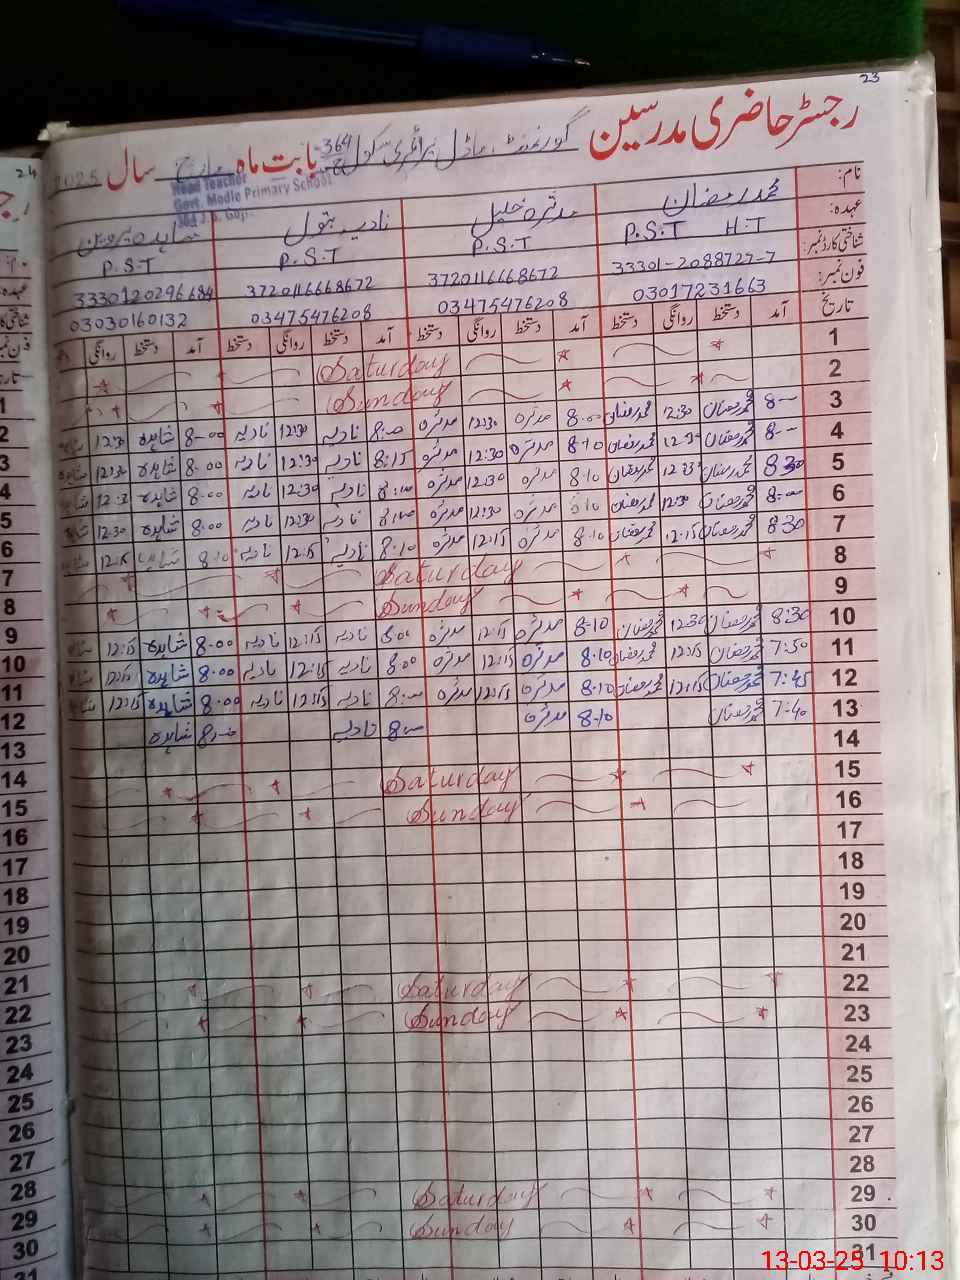 23
رجسٹر حاضری مدرسین گورنمنٹ ماڈل پرائمری سکول 364 بابت ماہ مارچ سال 2025
Head Teacher
Govt. Modle Primary School
364 J.B. Goj.
نام: محمد رمضان مدثرہ خلیل نادیہ بتول شاہدہ پروین
عہدہ: P.S.T H.T P.S.T P.S.T P.S.T
شناختی کارڈ نمبر: 33301-2088727-7 3720116668672 3720116668672 3330120296684
فون نمبر: 03017231663 03475476208 03475476208 03030160132
تاریخ آمد دستخط روانگی دستخط آمد دستخط روانگی دستخط آمد دستخط روانگی دستخط آمد دستخط روانگی
1 Saturday
2 Sunday
3 8-- محمد رمضان 12:30 محمد رمضان 8.00 مدثرہ 12:30 مدثرہ 8:00 نادیہ 12:30 نادیہ 8-00 شاہدہ 12:30
4 8-- محمد رمضان 12:30 محمد رمضان 8:10 مدثرہ 12:30 مدثرہ 8:15 نادیہ 12:30 نادیہ 8.00 شاہدہ 12:30
5 8:30 محمد رمضان محمد رمضان 8.10 مدثرہ 12:30 مدثرہ نادیہ 12:30 نادیہ 8.00 شاہدہ
6 8:00 محمد رمضان 12:30 محمد رمضان مدثرہ 12:30 مدثرہ نادیہ 12:30 نادیہ 8.00 شاہدہ 12:30
7 8:30 محمد رمضان 12:15 محمد رمضان 8.10 مدثرہ 12:15 مدثرہ 8:10 نادیہ 12:15 نادیہ 8.10 شاہدہ 12:15
8 Saturday
9 Sunday
10 8:30 محمد رمضان 12:30 محمد رمضان 8-10 مدثرہ 12:15 مدثرہ 8:00 نادیہ 12:15 نادیہ 8.00 شاہدہ 12:15
11 7:50 محمد رمضان 12:15 محمد رمضان 8.10 مدثرہ 12:15 مدثرہ 8:00 نادیہ 12:15 نادیہ 8.00 شاہدہ 12:15
12 7:45 محمد رمضان 12:15 محمد رمضان 8.10 مدثرہ 12:15 مدثرہ 8:00 نادیہ 12:15 نادیہ 8.00 شاہدہ 12:15
13 7:40 محمد رمضان 8.10 مدثرہ 8:00 نادیہ شاہدہ
14
15 Saturday
16 Sunday
17
18
19
20
21
22 Saturday
23 Sunday
24
25
26
27
28
29 Saturday
30 Sunday
31
24
1
2
3
4
5
6
7
8
9
10
11
12
13
14
15
16
17
18
19
20
21
22
23
24
25
26
27
28
29
30
31
13-03-25 10:13